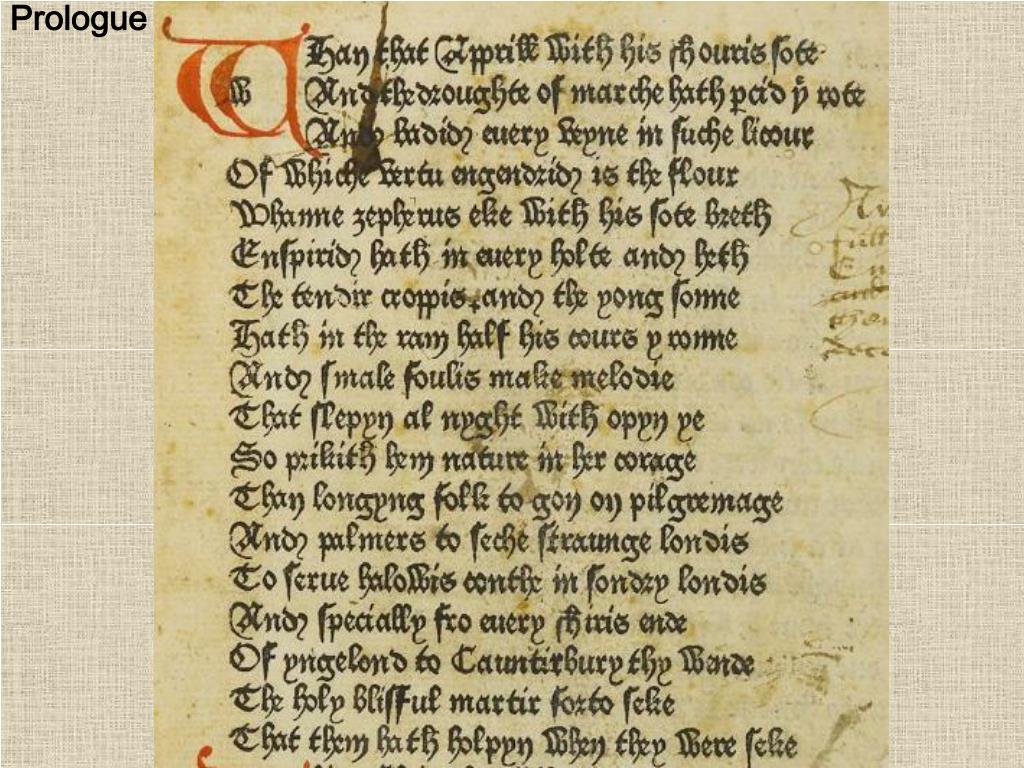 Prologue
WHan that Apprill with his shouris sote
And the droughte of marche hath ꝑcid yͤ rote
And badid euery veyne in suche licour
Of whiche vertu engendrid is the flour
Whanne zepherus eke with his sote breth
Enspirid hath in euery holte and heth
The tendir croppis and the yong sonne
Hath in the ram half his cours y ronne
And smale foulis make melodie
That slepyn al nyght with opyn ye
So prikith hem nature in her corage
Than longyng folk to gon on pilgremage
And palmers to seche straunge londis
To serue halowis couthe in sondry londis
And specially fro euery shiris ende
Of yngelond to Cauntirbury thy wende
The holy blisful martir forto seke
That them hath holpyn when they were seke